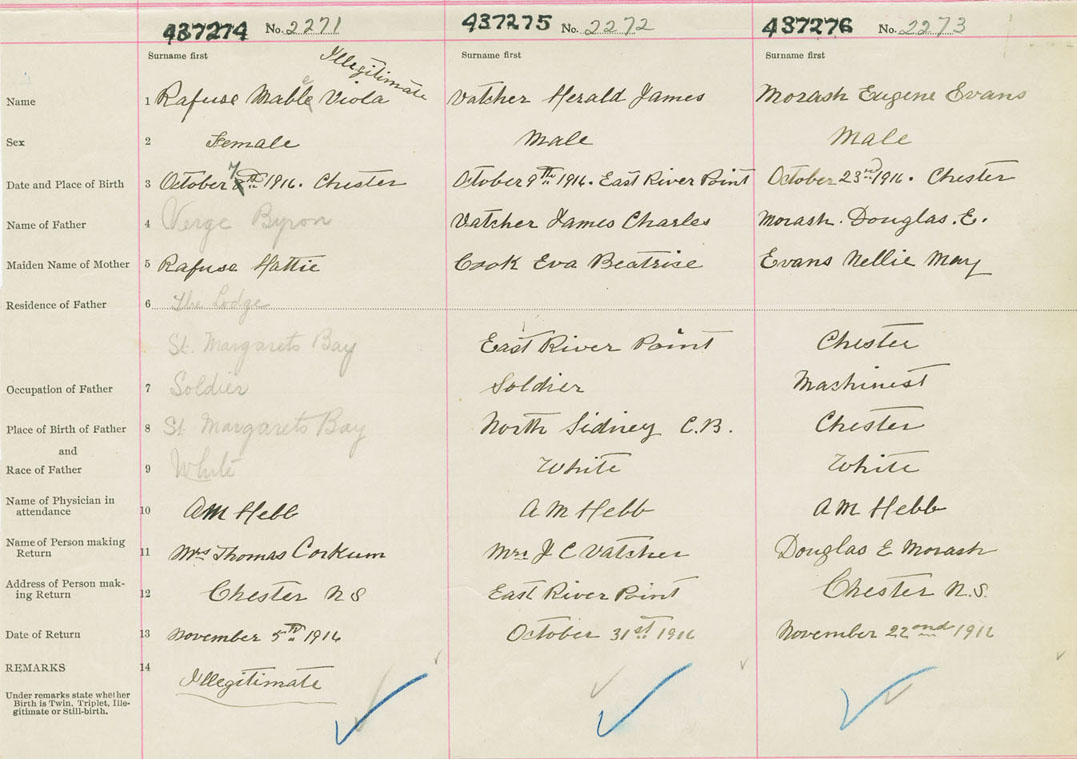 437274 No. 2271 437275 No. 2272 437276 No. 2273
Surname first Illegitimate Surname first Surname first
Name 1 Rafuse Mable Viola Vatcher Herald James Morash Eugene Evans
Sex 2 Female Male Male
Date and Place of Birth 3 October 7th 1916. Chester October 9th 1916. East River Point October 23rd 1916. Chester
Name of Father 4 Verge Byron Vatcher James Charles Morash. Douglas. E.
Maiden Name of Mother 5 Rafuse Hattie Cook Eva Beatrise Evans Nellie May
Residence of Father 6 The Lodge
St. Margarets Bay East River Point Chester
Occupation of Father 7 Soldier Soldier Mashinest
Place of Birth of Father 8 St. Margarets Bay North Sidney C.B. Chester
and
Race of Father 9 White White White
Name of Physician in
attendance 10 AM Hebb A M Hebb A M Hebb
Name of Person making
Return 11 Mrs Thomas Corkum Mrs J C Vatcher Douglas E Morash
Address of Person mak-
ing Return 12 Chester N S East River Point Chester N.S.
Date of Return 13 November 5th 1916 October 31st 1916 November 22nd 1916
REMARKS 14 Illegitimate
Under remarks state whether
Birth is Twin, Triplet, Ille-
gitimate or Still-birth.